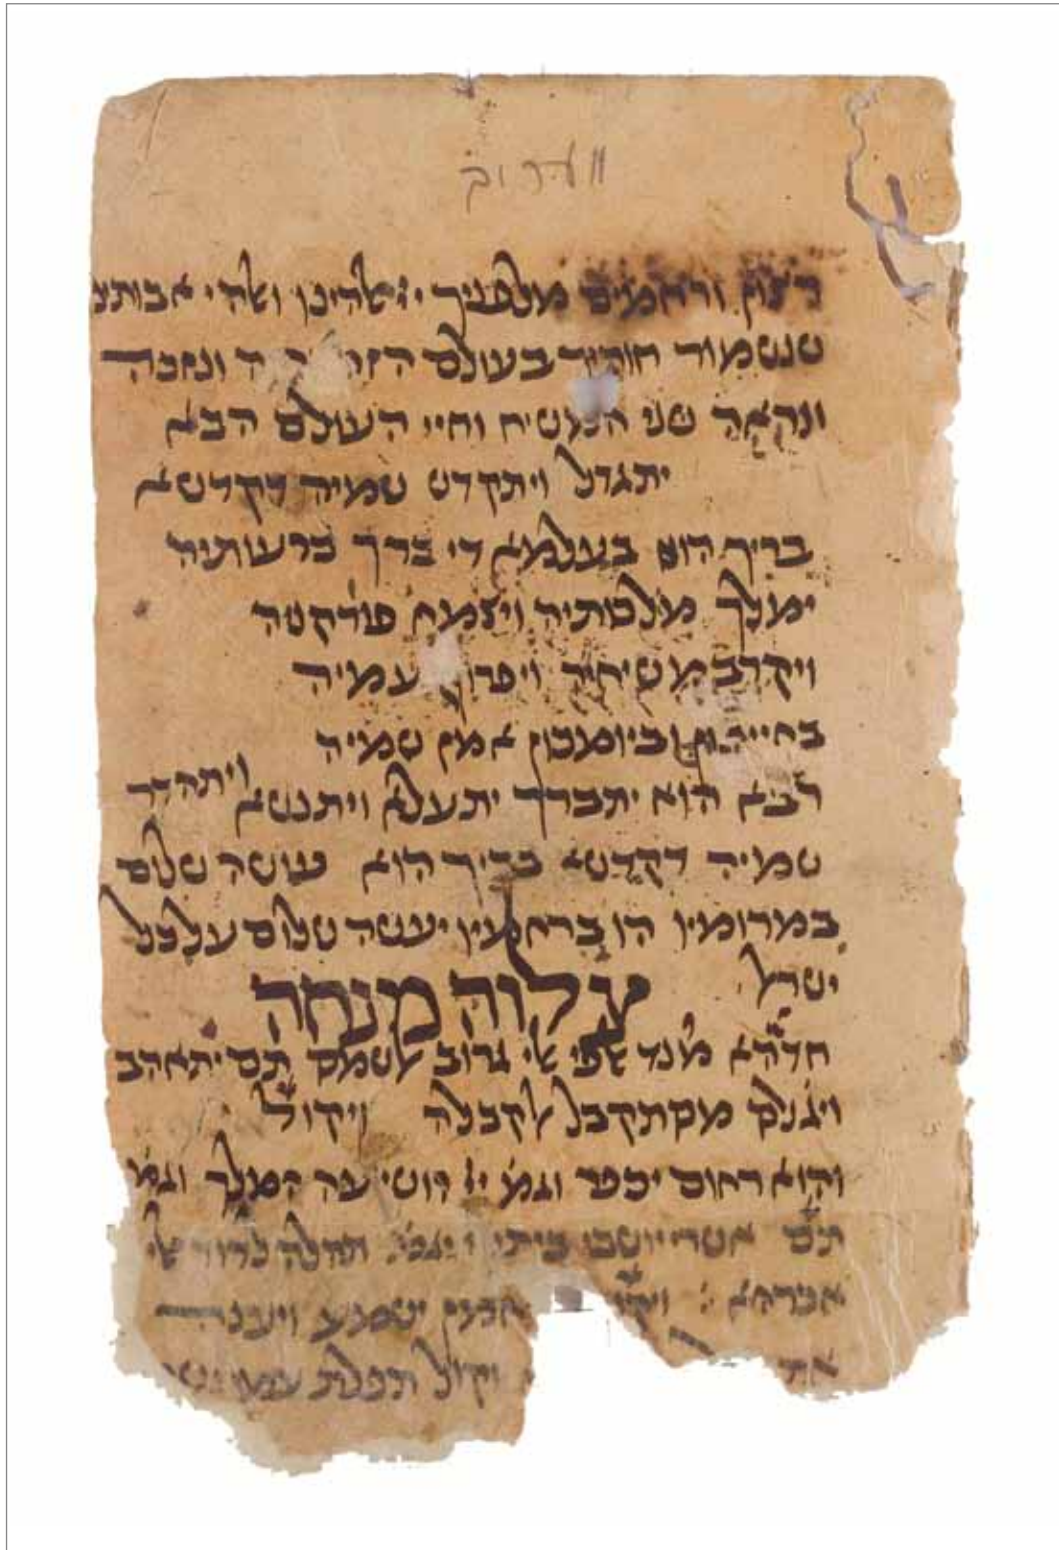 רצון ורחמים מלפניך ייי אלהינו ואלהי אבותינ
שנשמור חוקיך בעולם הזה ונזכה
ונראה שני המשיח וחיי העולם הבא
יתגדל ויתקדש שמיה דקדשא
בריך הוא בעלמא די ברך כרעותיה
ימלך מלכותיה ויצמח פורקניה
ויקרב משיחיה ויפרוק עמיה
בחייכון וביומכון אמן שמיה
רבא הוא יתברך יתעלא ויתנשא ויתהדר
שמיה דקדשא בריך הוא עושה שלום
במרומיו הו ברחמיו יעשה שלום על כל
ישראל
צלוה מנחה
חדהא מנד גרוב אשמס תם יתאהב
מסתקבל לקבלה ויקול
והוא רחום יכפר וגמ ייי הושיעה המלך וגמ
תם אשרי יושבי ביתיך תהלה לדוד אלי
אכרהא ישמע ויענה
ויקול